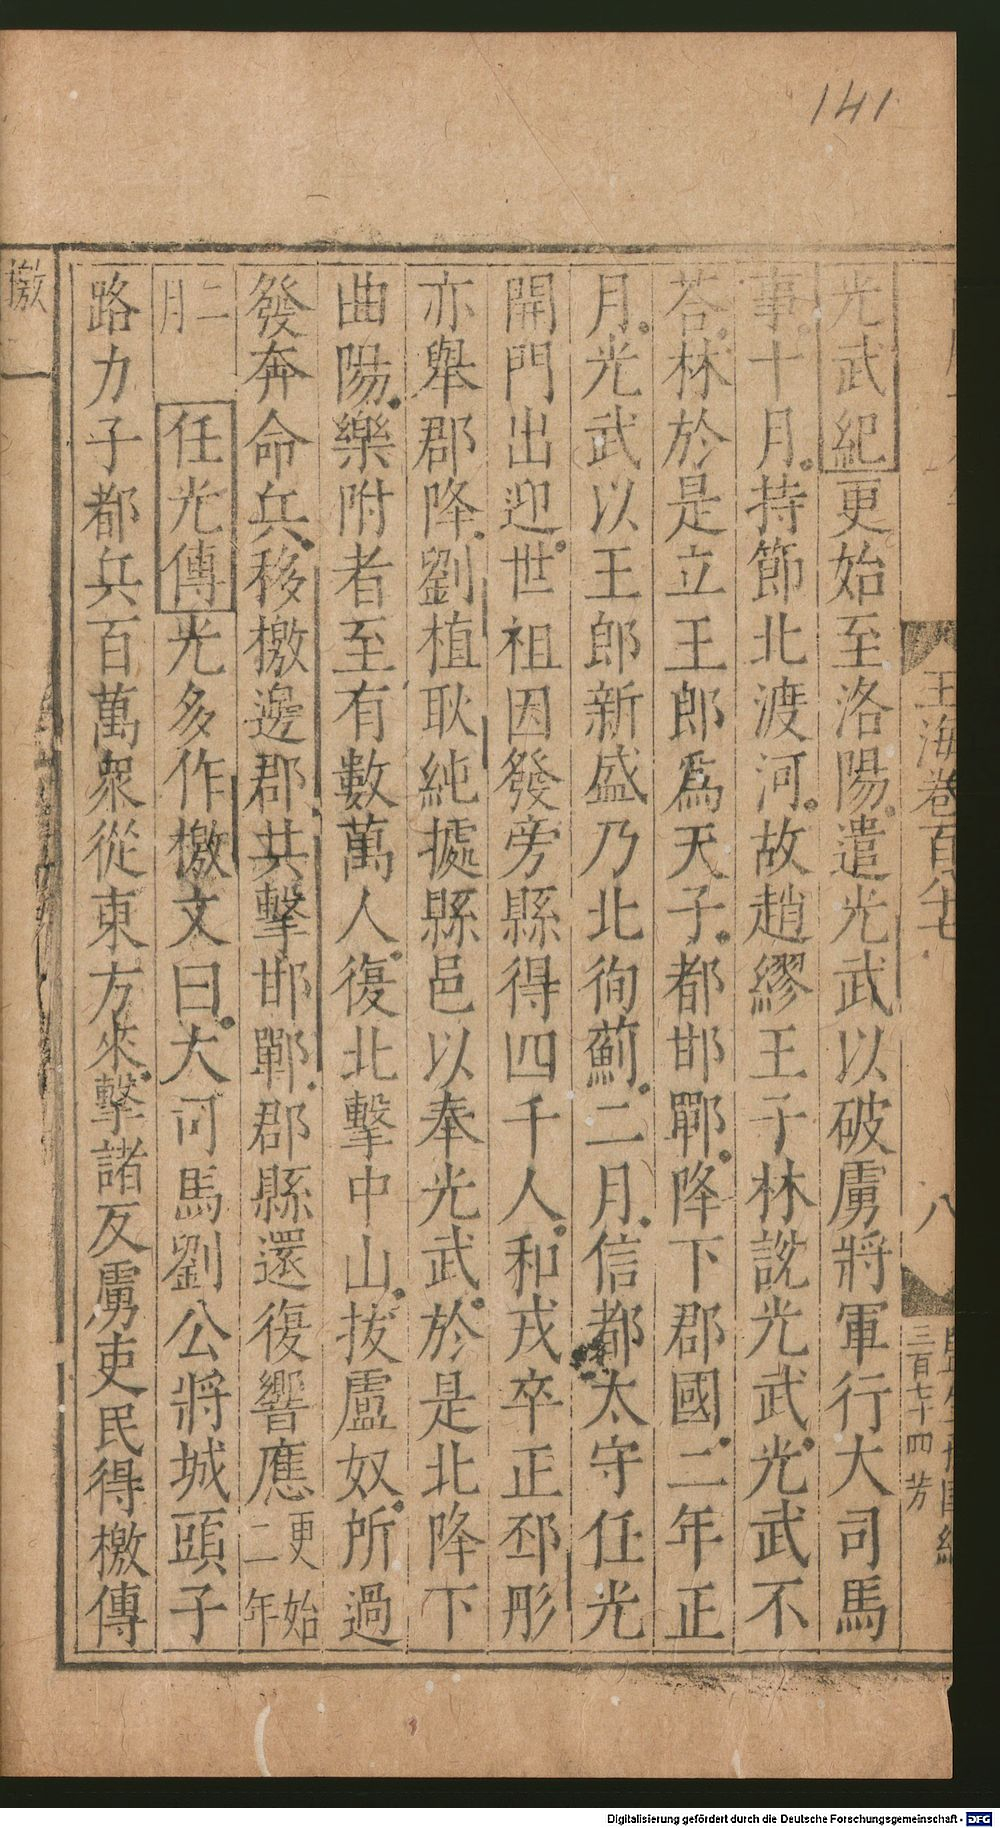 141
玉海卷百八十七
八
三百七十四 芳
光武紀更始至洛陽遣光武以破虜將軍行大司馬
事十月持節北渡河故趙繆王子林說光武光武不
荅林於是立王郎爲天子都邯鄲降下郡國二年正
月光武以王郎新盛乃北徇薊二月信都太守任光
開門出迎世祖因發旁縣得四千人和戎卒正邳彤
亦舉郡降劉植耿純據縣邑以奉光武於是北降下
曲陽樂附者至有數萬人復北擊中山拔盧奴所過
發奔命兵移檄邊郡共擊邯鄲郡縣還復響應更始二年
二月 任光傳光多作檄文曰大司馬劉公將城頭子
路力子都兵百萬衆從東方來擊諸反虜吏民得檄傳
檄一
Digitalisierung gefördert durch die Deutsche Forschungsgemeinschaft - DFG